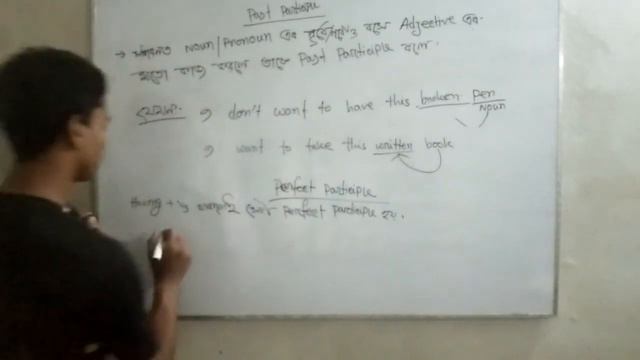 Past Participle
→ সাধারণত Noun / Pronoun এর পূর্বে বসে Adjective এর
মতো কাজ করলে তাকে Past Participle বলে.
যেমন:- I don't want to have this broken pen
Noun
I want to take this written book
Perfect Participle
Having + V3 Perfect Participle হয়.